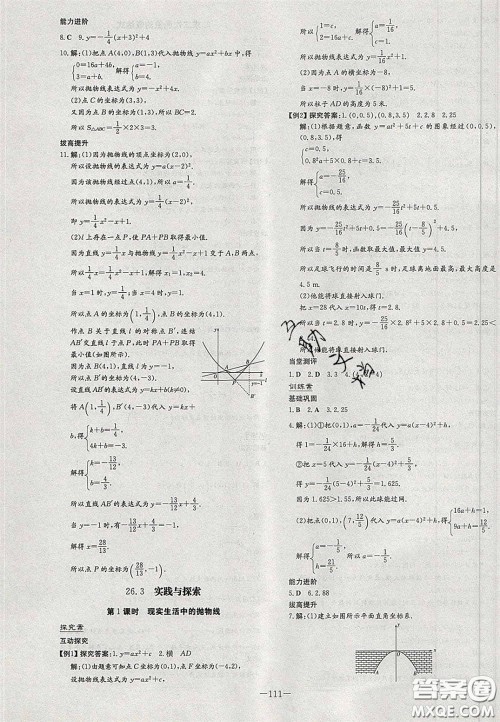 能力进阶
8.C 9.y=-1/4(x+3)²+4
10.解:(1)把点A(4,0),B(1,3)代入抛物线y=ax²+bx中,得
{0=16a+4b,
3=a+b,
所以抛物线表达式为y=-x²+4x.
(2)点C的坐标为(3,3),
又因为点B的坐标为(1,3),所以BC=2.
所以S△ABC=1/2×2×3=3.
拔高提升
11.解:(1)因为抛物线的顶点坐标为(2,0),
所以设抛物线的表达式为y=a(x-2)².
因为该抛物线经过点(4,1),所以a=1/4.
即y=1/4x²-x+1.
(2)l上存在一点P,使PA+PB取得最小值.
因为直线y=1/4x与抛物线y=1/4x²-x+1交于A,B两点.
所以1/4x=1/4x²-x+1,解得x₁=1,x₂=4.
当x=1时,y=1/4;当x=4时,y=1.
所以点A的坐标为(1,1/4),点B的坐标为(4,1).
作点B关于直线l的对称点B′,连结
AB′,交直线l于点P,此时PA+PB取得
最小值(如图所示).
因为直线l的表达式为y=-1,
所以点B′的坐标为(4,-3).
设直线AB′的表达式为y=kx+b(k≠0)
将A(1,1/4),B′(4,-3)代入y=kx+b,
得{k+b=1/4,
4k+b=-3.
解得{k=-13/12,
b=4/3.
所以直线AB′的表达式为y=-13/12x+4/3.
当y=-1时,有-13/12x+4/3=-1.
解得x=28/13.
所以点P的坐标为(28/13,-1)
26.3 实践与探索
第1课时 现实生活中的抛物线
探究案
互动探究
【例1】探究答案:1.y=ax²+c 2.横 AD
解:(1)由题意可知点C的坐标为(0,1),点F的坐标为(-4,2),
设抛物线的表达式为y=ax²+c,
所以{c=1,
所以抛物线的表达式为y=1/16x²+1.
(2)因为点A的横坐标为-8,
当x=-8时,y=5,
所以柱子AD的高度为5米.
【例2】探究答案:1.(0,0.5),(0.8,3.5) 2.2.8 2.25
解:(1)根据题意,函数y=at²+5t+c的图象经过(0,0.5),
(0.8,3.5),
得{c=0.5,
解得{a=-25/16,
c=0.5,
所以当t=8/5时,函数取最大值,最大值为4.5.
所以足球飞行的时间是8/5 s时,足球离地面最高,最大高度是
4.5 m.
(2)他能将球直接射入球门.
把x=28代入x=10t,得t=2.8,
所以当t=2.8时,y=-25/16×2.8²+5×2.8+0.5=2.25<2.44.
所以他能将球直接射入球门.
当堂测评
训练案
基础巩固
1.B 2.A 3.25
4.解:(1)①把(0,1),a=-1/24代入y=a(x-4)²+h,
得1=-1/24×16+h,解得h=5/3.
②把x=5代入y=-1/24(x-4)²+5/3,
得y=-1/24(5-4)²+5/3=1.625.
因为1.625>1.55,所以此球能过网.
(2)把点(0,1),(7,12/5)代入y=a(x-4)²+h,得{16a+h=1,
9a+h=12/5.
解得{a=-1/5,
h=21/5.
所以a=-1/5.
能力进阶
5.D 6.2.88
拔高提升
7.解:(1)建立如图所示平面直角坐标系.
—111—
答案圈
MXQE.COM